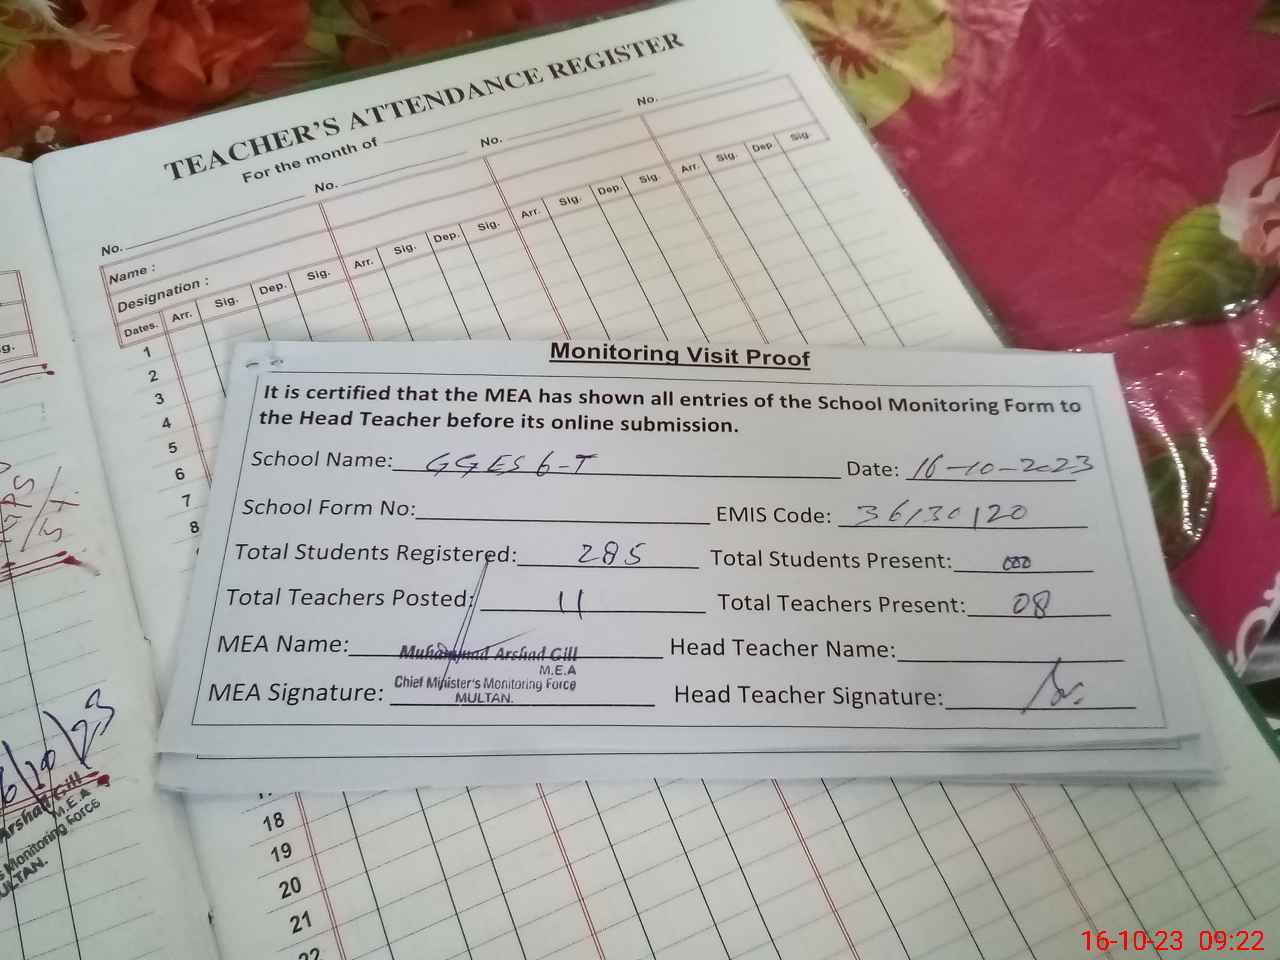 TEACHER'S ATTENDANCE REGISTER
For the month of
No. No. No. No.
Name :
Designation :
Dates. Arr. Sig. Dep. Sig. Arr. Sig. Dep. Sig. Arr. Sig. Dep. Sig. Arr. Sig. Dep. Sig.
1
2
3
4
5
6
7
8
Monitoring Visit Proof
It is certified that the MEA has shown all entries of the School Monitoring Form to
the Head Teacher before its online submission.
School Name: GGES 6-T Date: 16-10-2023
School Form No: EMIS Code: 36130120
Total Students Registered: 285 Total Students Present: 000
Total Teachers Posted: 11 Total Teachers Present: 08
MEA Name: Muhammad Arshad Gill Head Teacher Name:
M.E.A
Chief Minister's Monitoring Force
MEA Signature: MULTAN. Head Teacher Signature:
18
19
20
21
22
Arshad Gill
M.E.A
Monitoring Force
MULTAN.
16-10-23 09:22